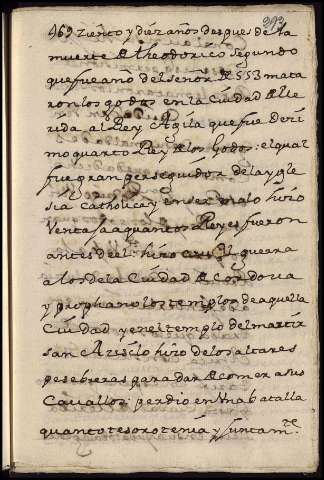 392
469 ziento y diez años despues de la
muerte de theodorico segundo
que fue ano del señor de 553 mata
ron los godos en la ciudad de le
rida al Rey Agila que fue deçi
mo quarto Rey de los Godos: el qual
fue gran perseguidor de la ygle
sia catholica y en ser malo hizo
Ventaja a quantos Reyes fueron
antes de el: hizo cruel guerra
a los de la Ciudad de Cordoua
y prophano los templos de aquella
Ciudad y en el templo del martir
san Azisclo hizo de los altares
pesebreras para dar de comer a sus
Cauallos: perdio en Vna batalla
quanto tesoro tenia y juntamte